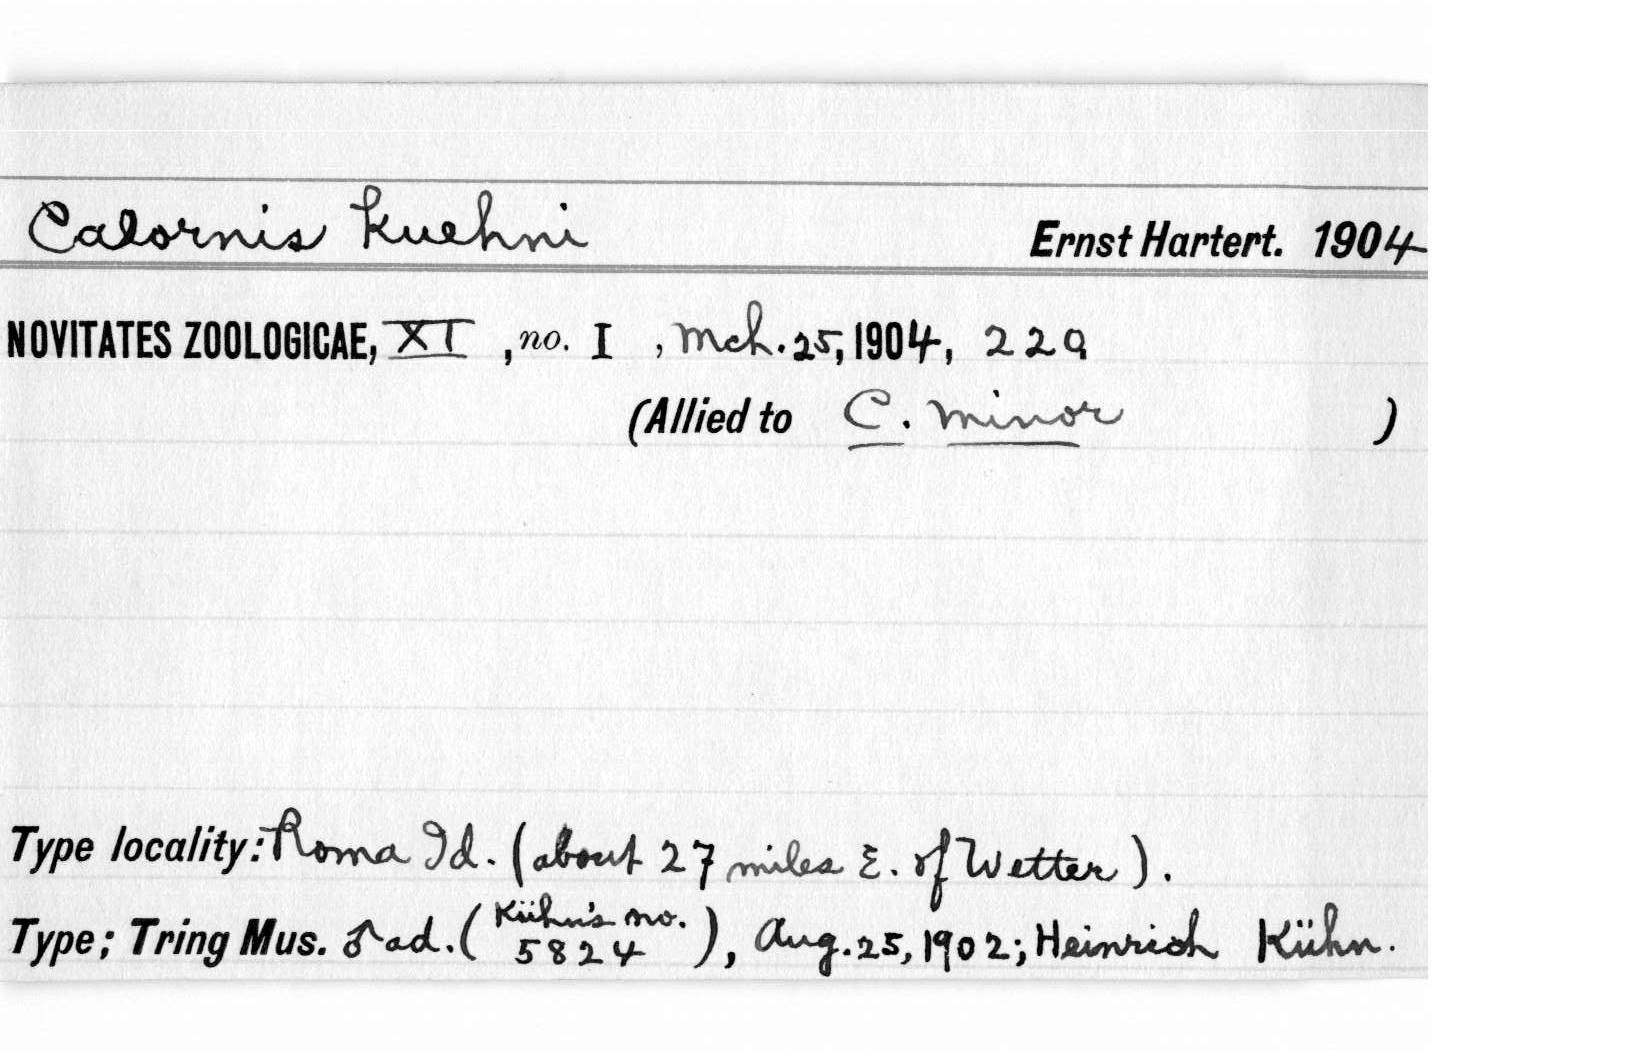 Calornis kuehni Ernst Hartert. 1904
NOVITATES ZOOLOGICAE, XI, no. I, Mch. 25, 1904, 229
(Allied to C. minor )
Type locality: Roma Id. (about 27 miles E. of Wetter).
Type; Tring Mus. ♂ ad. (Kühn's no. 5824), Aug. 25, 1902; Heinrich Kühn.